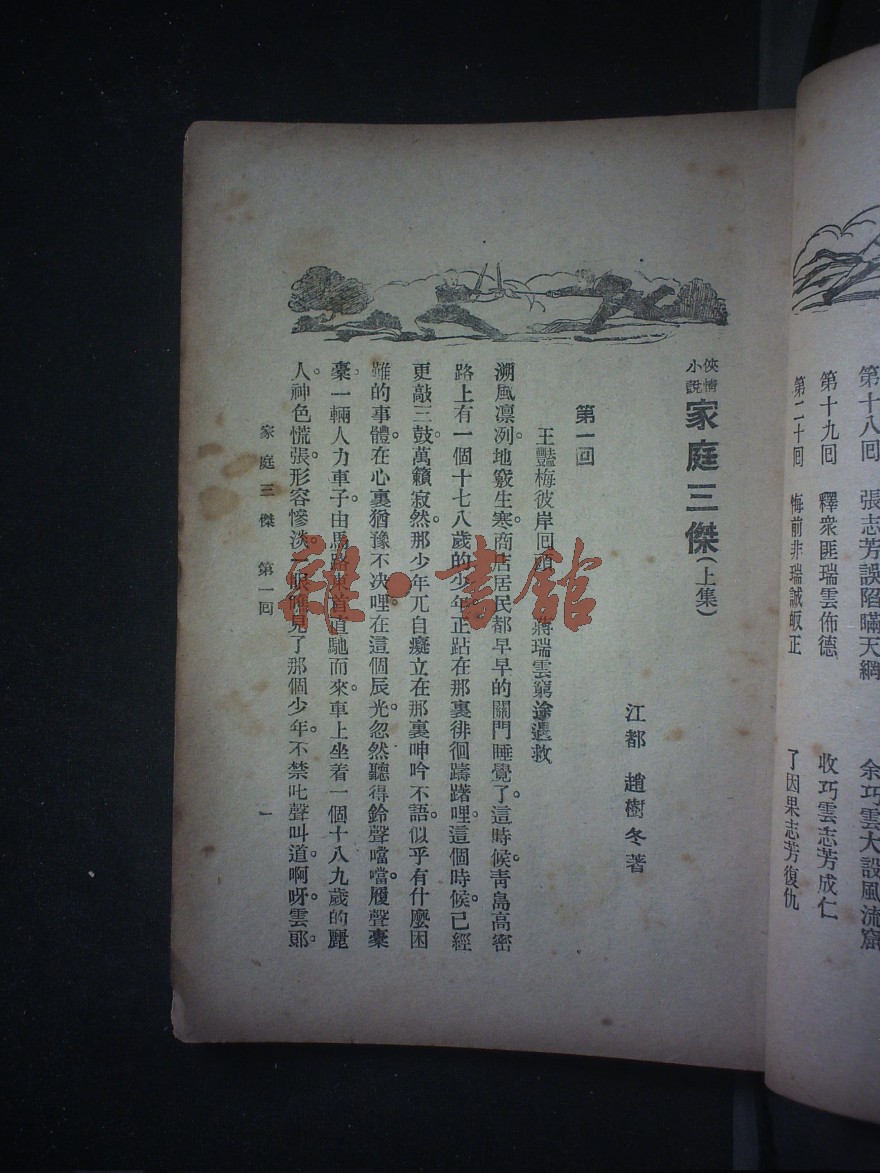 第十八回 張志芳誤陷瞞天網 余巧雲大設風流窟
第十九回 釋衆匪瑞雲佈德 收巧雲志芳成仁
第二十回 悔前非瑞誠皈正 了因果志芳復仇
俠情小說 家庭三傑(上集)
江都 趙樹冬著
第一回
王豔梅彼岸回頭 蔣瑞雲窮途遇救
溯風凛冽。地竅生寒。商店居民都早早的關門睡覺了。這時候靑島高密
路上有一個十七八歲的少年。正跕在那裏徘徊躊躇哩。這個時候。已經
更敲三鼓。萬籟寂然。那少年兀自癡立在那裏呻吟不語。似乎有什麼困
難的事體。在心裏猶豫不决哩。在這個辰光。忽然聽得鈴聲噹噹。履聲橐
橐。一輛人力車子。由馬路東首直馳而來。車上坐着一個十八九歲的麗
人。神色慌張。形容慘淡。一眼瞧見了那個少年。不禁叱聲叫道。啊呀雲郎。
家庭三傑 第一回 一
雜·書館